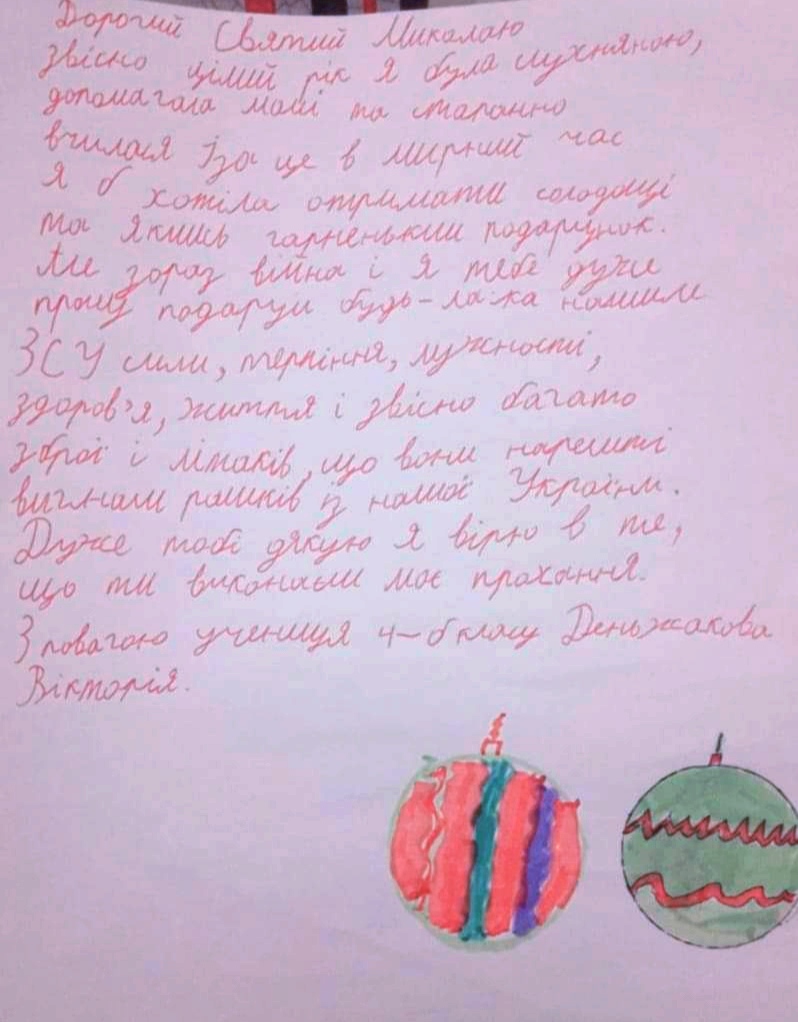 Дорогий Святий Миколаю
звісно цілий рік я була слухняною,
допомагала мамі та старанно
вчилася І за це в мирний час
я б хотіла отримати солодощі
та якийсь гарненький подарунок.
Але зараз війна і я тебе дуже
прошу подаруй будь-ласка нашим
ЗСУ сили, терпіння, мужності,
здоров'я, життя і звісно багато
зброї і літаків, що вони нарешті
вигнали рашків із нашої України.
Дуже тобі дякую я вірю в те,
що ти виконаєш моє прохання.
З повагою учениця 4-б класу Деньжакова
Вікторія.